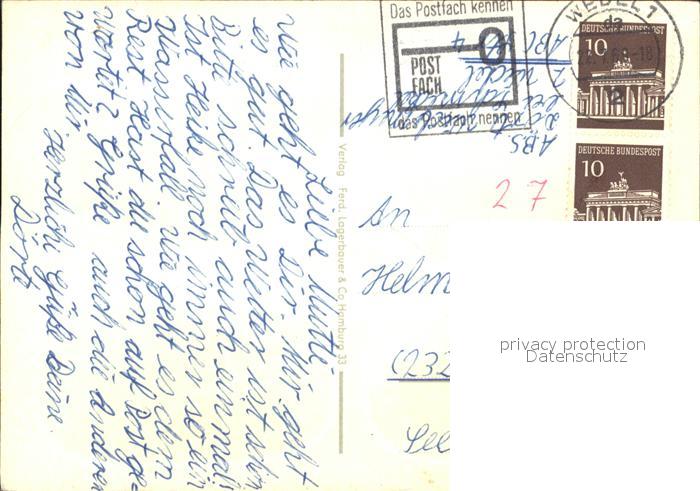 Liebe Mutti
Wie geht es Dir. Mir geht
es gut. Das Wetter ist schön
Bitte schreib auch einmal.
Ist Heike noch immer so ein
Wasserfall. Wie geht es dem
Rest. Hast du schon auf Post ge-
wartet? Grüße auch die anderen
von mir
Herzliche Grüße Deine
Dörte
Verlag Ferd. Lagerbauer & Co Hamburg 33
Das Postfach kennen
POST
FACH
das Postfach nennen
WEDEL 1
da
2
DEUTSCHE BUNDESPOST
10
DEUTSCHE BUNDESPOST
10
ABS
bei
2 Wedel
27
An
Helm
(232
See
privacy protection
Datenschutz